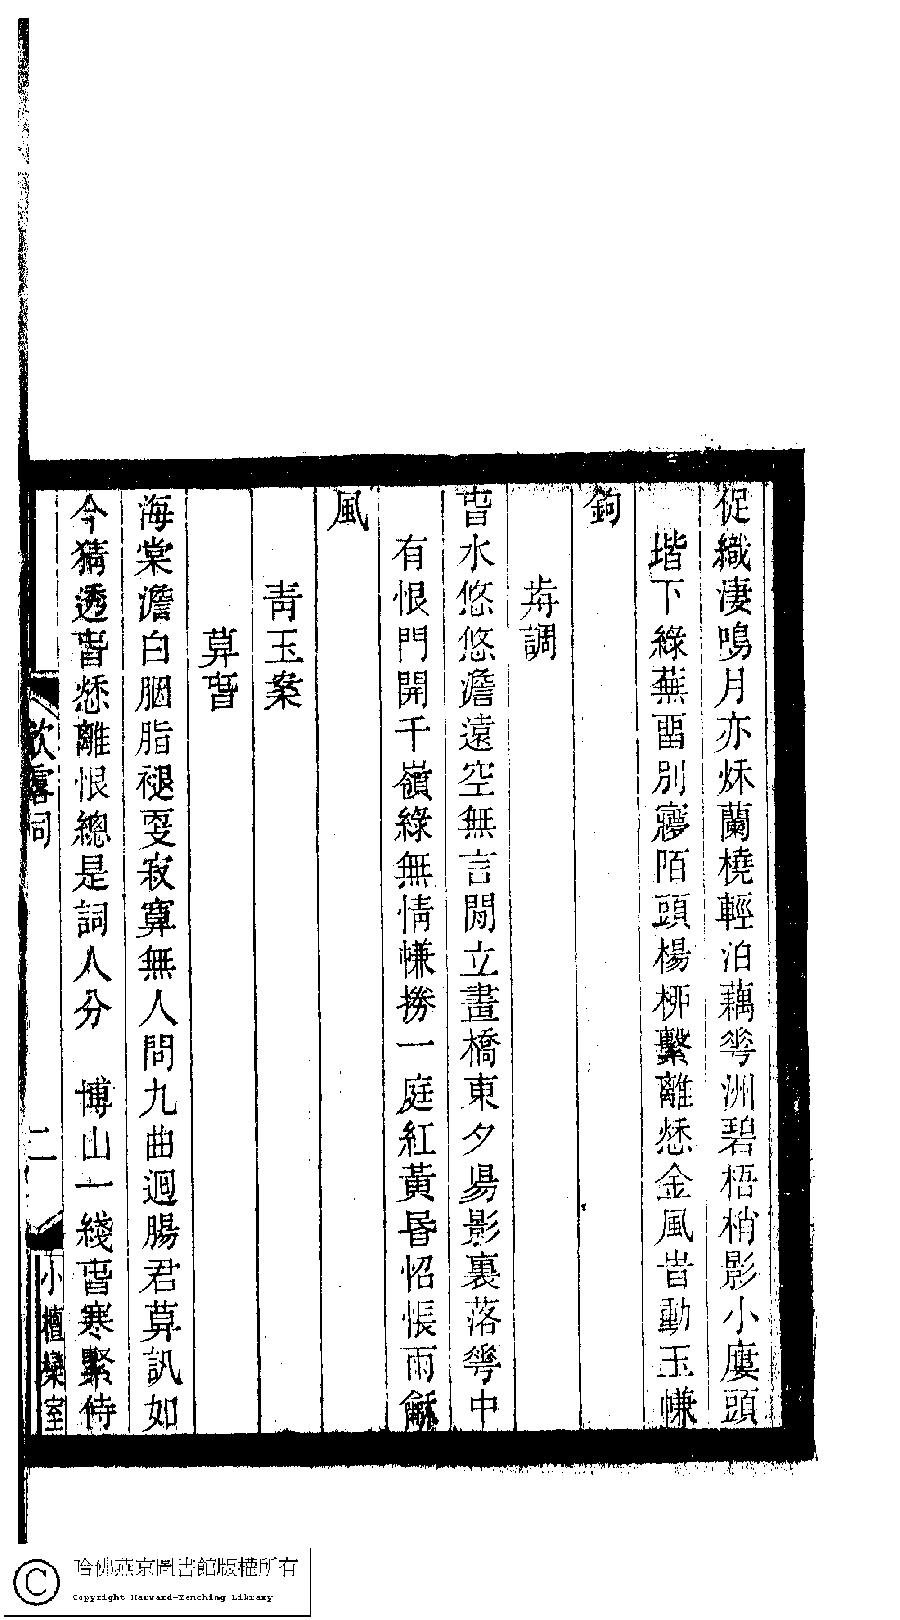 促織淒鳴月亦秌蘭橈輕泊藕蕐洲碧梧梢影小廔頭
堦下綠蕪畱別㝱陌頭楊桺繫離愁金風旹動玉㡘
鉤
歬調
旾水悠悠澹遠空無言閒立畫橋東夕昜影裏落蕐中
有恨門開千嶺綠無情㡘搒一庭紅黃昏怊悵雨龢
風
青玉案
莫旾
海棠澹白胭脂褪㪅寂寞無人問九曲迴腸君莫訊如
今猜透旾愁離恨總是詞人分　博山一綫旾寒緊待
飲露詞
二
小檀欒室
哈佛燕京圖書館版權所有
Copyright Harvard-Yenching Library